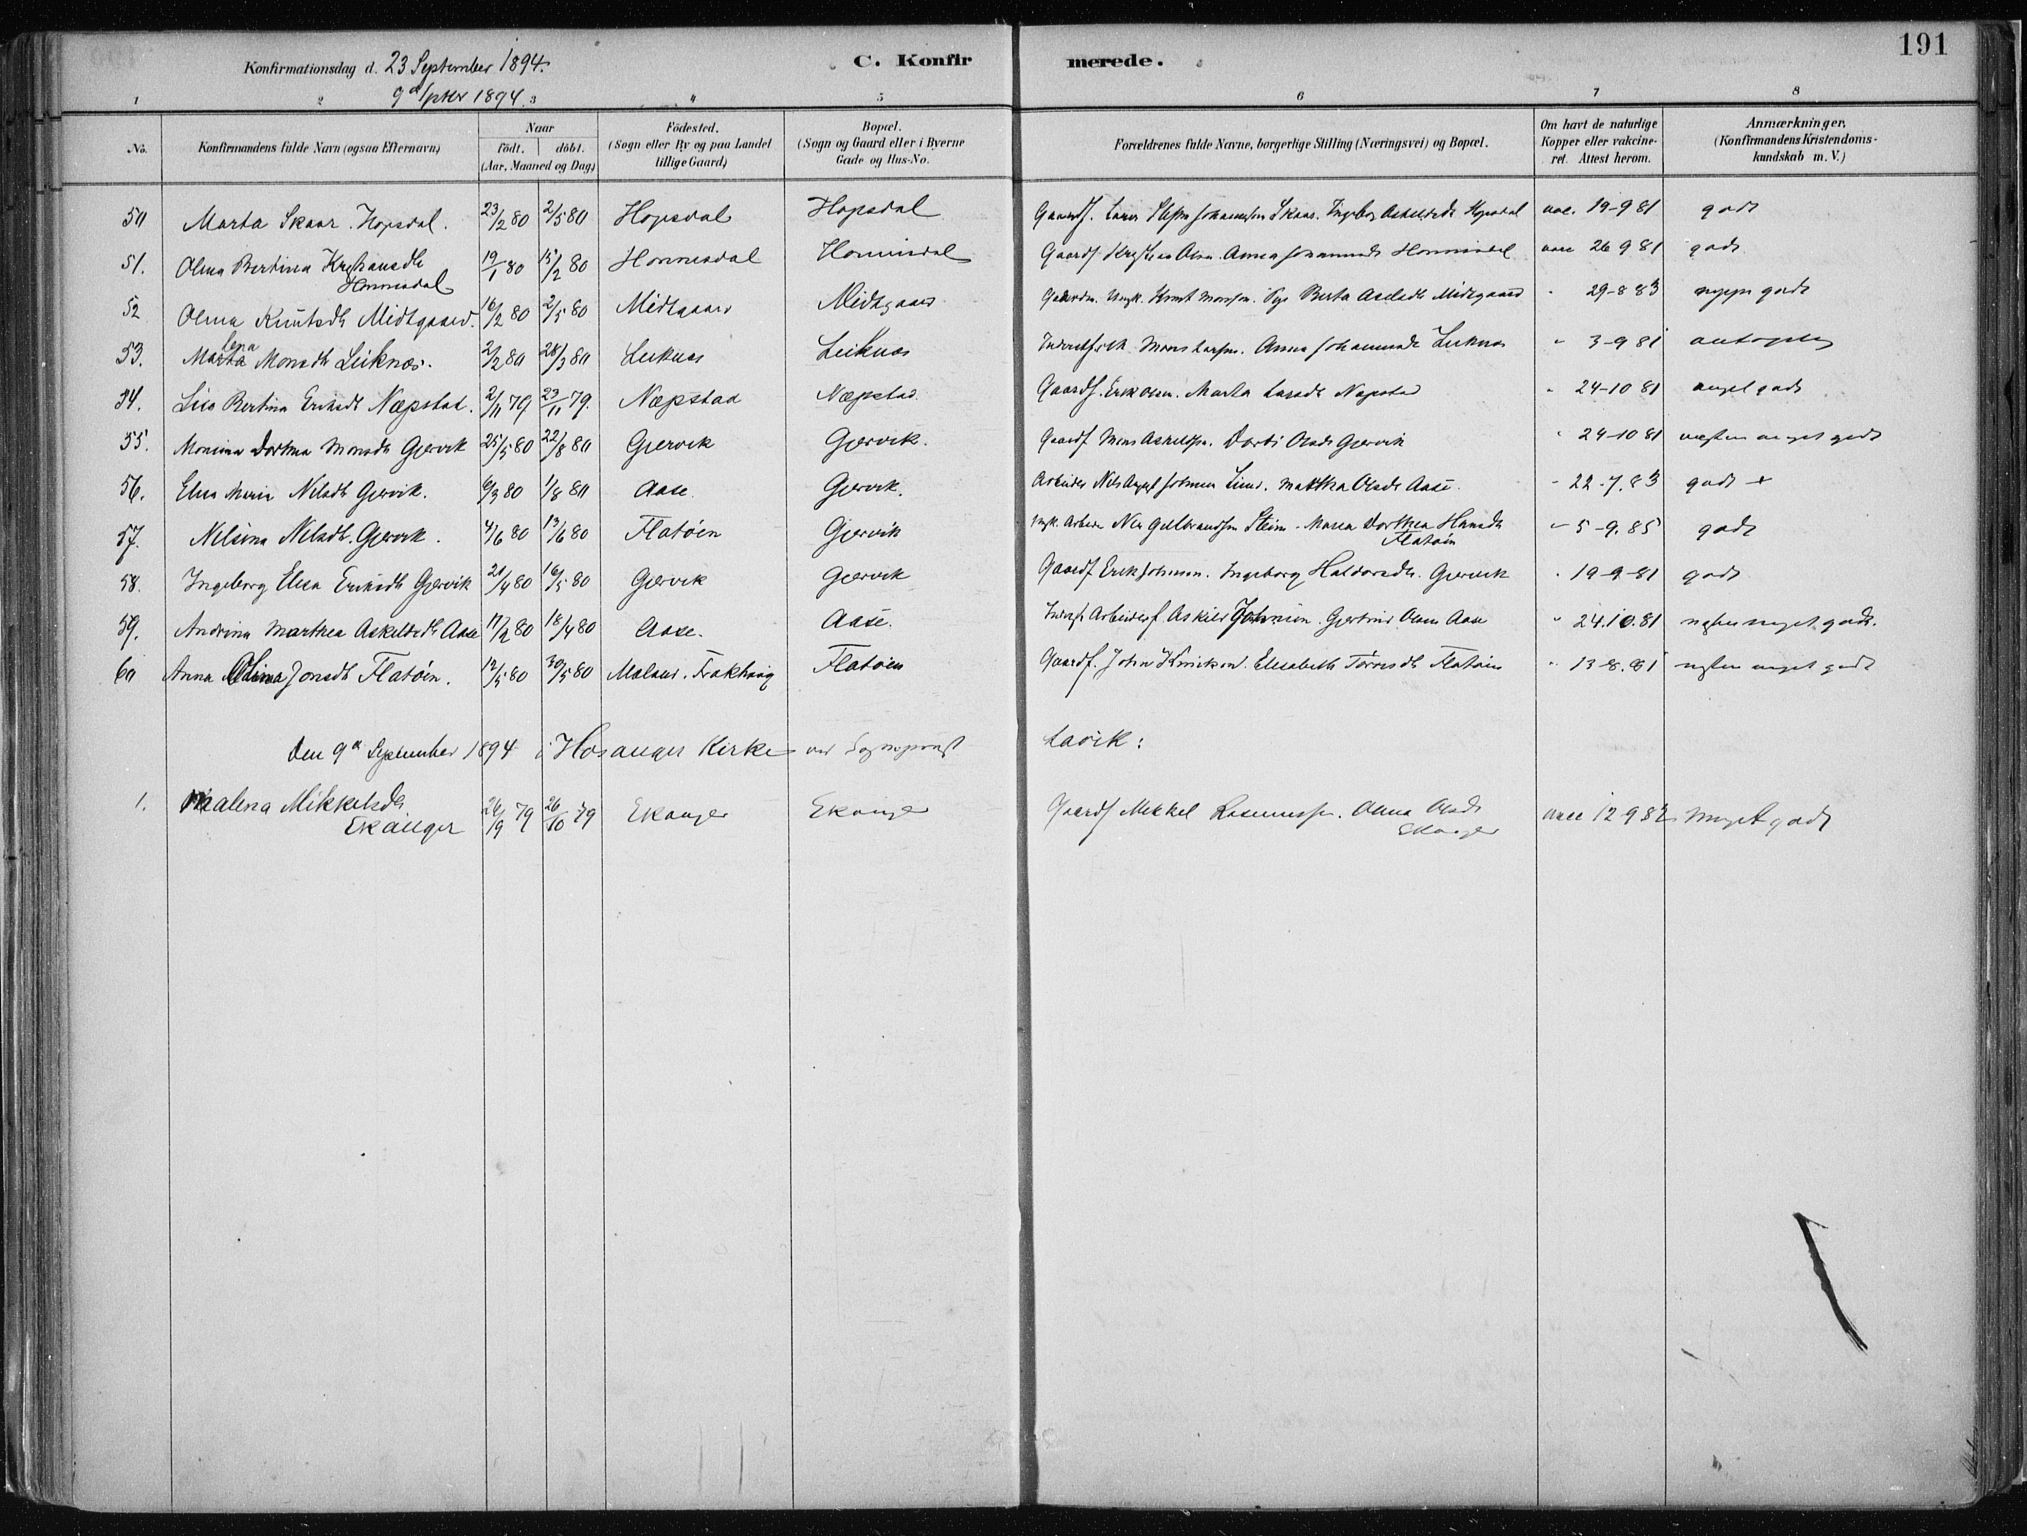 191
Konfirmationsdag d. 23 September 1894. C. Konfirmerede.
9de Septbr 1894.
1 2 3 4 5 6 7 8
No. Konfirmandens fulde Navn (ogsaa Efternavn) Naar födt. döbt. (Aar, Maaned og Dag) Födested. (Sogn eller By og paa Landet tillige Gaard) Bopæl. (Sogn og Gaard eller i Byerne Gade og Hus-No. Forældrenes fulde Navne, borgerlige Stilling (Næringsvei) og Bopæl. Om havt de naturlige Kopper eller vakcineret. Attest herom. Anmærkninger. (Konfirmandens Kristendomskundskab m. V.)
50 Marta Skaar. Hopsdal. 23/2 80 2/5 80 Hopsdal Hopsdal Gaardf. Johannessen Skaar. Ingeborg Askeldsdt Hopsdal vac. 19-9 81 godt
51. Olina Bertina Kristiansdt Honnesdal 19/1 80 15/2 80 Honnesdal Honnesdal Gaardf Kristian Olsen. Anna Johannesdt Honnesdal vacc 26 9 81 godt
52 Olina Knutsdt Midtgaard. 16/2 80 2/5 80 Midtgaard Midtgaard Knut Monsen. Pige Berta Midtgaard " 29-8 83 godt
53. Marta Lena Monsdt Leiknæs. 2/2 80 28/3 80 Leiknæs Leiknæs Mons Larsen. Anna Johannesdt Leiknæs " 3-9 81
54. Lisa Bertina Eriksdt Næpstad. 2/11 79 23/11 79. Næpstad Næpstad Gaardf. Erik Olsen. Marta Larsdt Næpstad " 24-10 81 meget godt
55. Monsina Dortea Monsdt Gjervik 25/5 80 22/8 80 Gjervik Gjervik. Gaardf Mons Askeldsen. Olsdt Gjervik " 24-10 81 næsten meget godt
56. Elen Maria Nilsdt Gjervik. 6/3 80 1/8 80 Aase Gjervik. Arbeider Nils Johnsen Lund. Martha Olsdt Aase. " 22-7.83 godt +
57. Nelsina Nelsdt. Gjervik. 4/6 80 13/6 80 Flatøen Gjervik Arbeider Nils Gulbrandsen Stein. Maren Dorthea Hansdt Flatøen " 5-9.85 godt
58. Ingeborg Elisa Eriksdt Gjervik 21/4 80 16/5 80 Gjervik Gjervik Gaardf Erik Johnsen. Ingeborg Haldorsdt. Gjervik " 19-9-81 godt
59. Andrina Marthea Askeldsdt Aase 17/2 80 18/4 80 Aase. Aase. Arbeiderf Askild Johnsen. Gjertrud Olsen Aase " 24.10.81 næsten meget godt.
60 Anna Olina Jonsdt Flatøen. 12/5 80 30/5 80 Maland. Flatøen Gaardf. John Knickson. Elisabeth Flatøen " 13-8.81 næsten meget godt
Den 9de September 1894 i Hosanger Kirke ved Sogneprest Lavik:
1. Malena Mikkelsdt Ekanger 26/9 79 26/10 79 Ekanger Ekanger Gaardf Mikkel Rasmussen. Anna Olsdt Ekanger vacc 12 9 82 meget godt